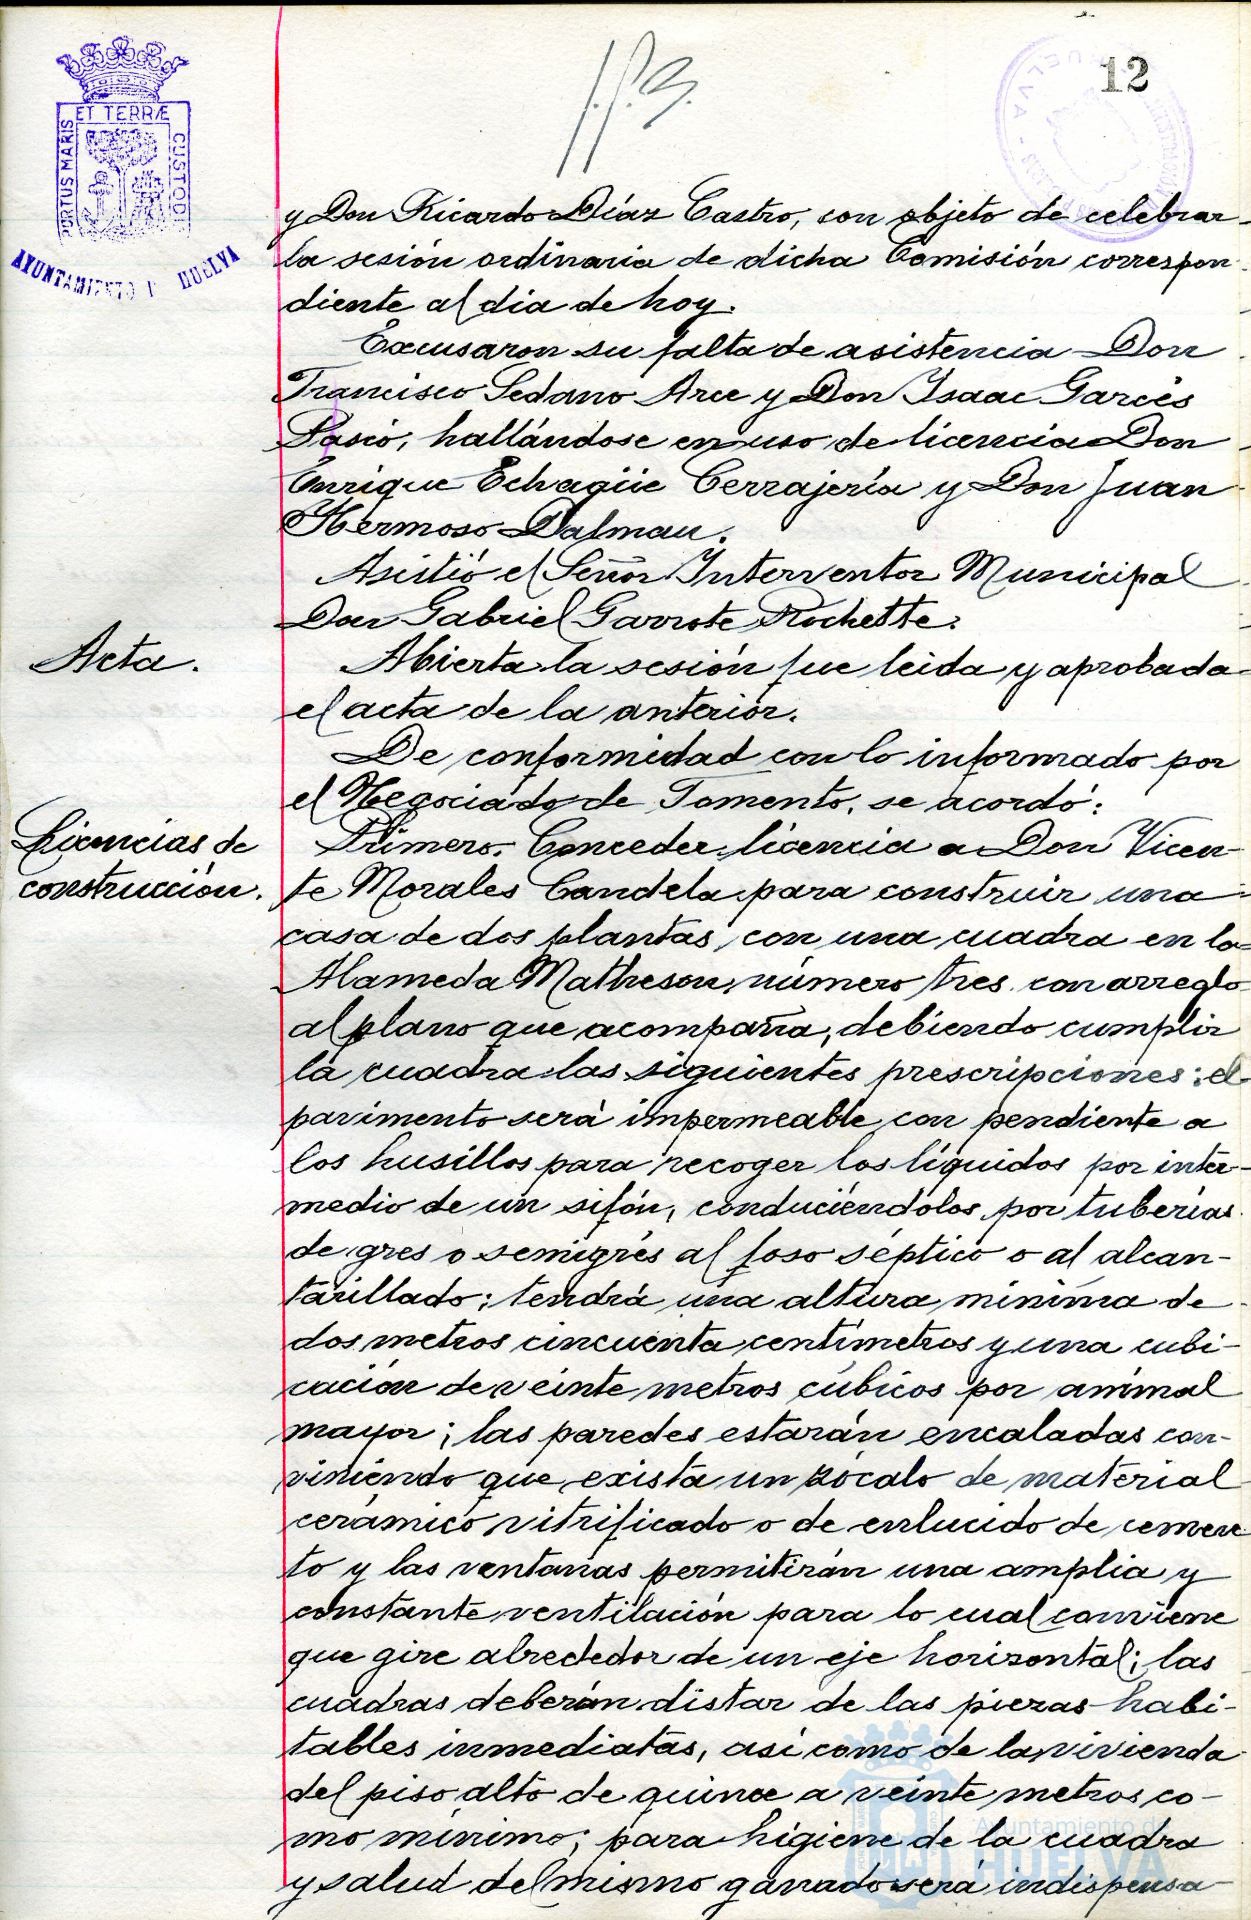 PORTUS MARIS ET TERRÆ CUSTODI
AYUNTAMIENTO D HUELVA
12
HUELVA
y Don Ricardo Díaz Castro, con objeto de celebrar
la sesión ordinaria de dicha Comisión correspon-
diente al dia de hoy.
Excusaron su falta de asistencia Don
Francisco Sedano Arce y Don Isaac Garcés
Pasió, hallándose en uso de licencia Don
Enrique Echagüe Cerrajería y Don Juan
Hermoso Dalmau.
Asistió el Señor Interventor Municipal
Don Gabriel Garrote Rochette.
Acta.
Abierta la sesión fue leida y aprobada
el acta de la anterior.
De conformidad con lo informado por
el Negociado de Fomento, se acordó:
Licencias de
construcción.
Primero. Conceder licencia a Don Vicen-
te Morales Candela para construir una
casa de dos plantas, con una cuadra en la
Alameda Matheson, número tres con arreglo
al plano que acompaña, debiendo cumplir
la cuadra las siguientes prescripciones: el
pavimento será impermeable con pendiente a
los husillos para recoger los líquidos por inter-
medio de un sifón, conduciéndolos por tuberías
de gres o semigrés al foso séptico o al alcan-
tarillado; tendrá una altura mínima de
dos metros cincuenta centímetros y una cubi-
cación de veinte metros cúbicos por animal
mayor; las paredes estarán encaladas con-
viniendo que exista un zócalo de material
cerámico vitrificado o de enlucido de cemen-
to y las ventanas permitirán una amplia y
constante ventilación para lo cual conviene
que gire alrededor de un eje horizontal; las
cuadras deberán distar de las piezas habi-
tables inmediatas, así como de la vivienda
del piso alto de quince a veinte metros co-
mo mínimo; para higiene de la cuadra
y salud del mismo ganado será indispensa-
Ayuntamiento de
HUELVA